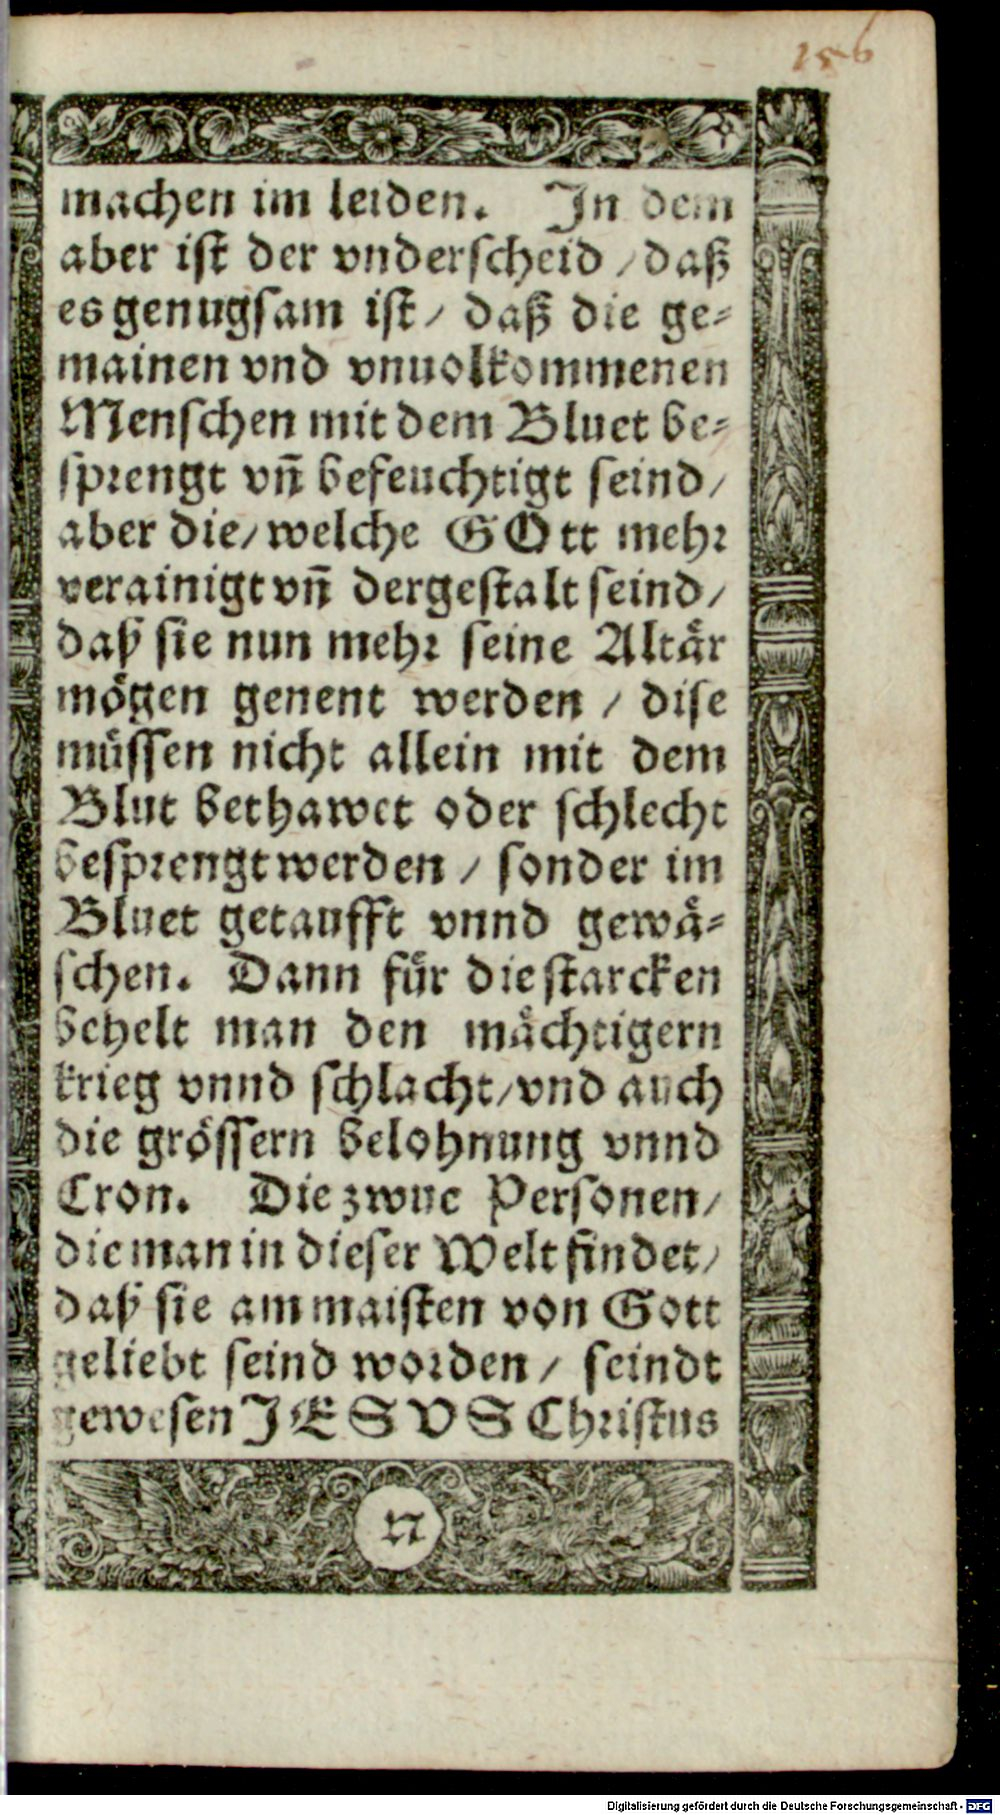 156
machen im leiden. In dem
aber ist der vnderscheid / daß
es genugsam ist / daß die ge-
mainen vnd vnuolkommenen
Menschen mit dem Bluet be-
sprengt vn̄ befeuchtigt seind /
aber die / welche GOtt mehr
verainigt vn̄ dergestalt seind /
daß sie nun mehr seine Altaͤr
moͤgen genent werden / dise
muͤssen nicht allein mit dem
Blut bethawet oder schlecht
besprengt werden / sonder im
Bluet getaufft vnnd gewaͤ-
schen. Dann fuͤr die starcken
behelt man den maͤchtigern
krieg vnnd schlacht / vnd auch
die groͤssern belohnung vnnd
Cron. Die zwue Personen /
die man in dieser Welt findet /
daß sie am maisten von Gott
geliebt seind worden / seindt
gewesen JESVS Christus
Digitalisierung gefördert durch die Deutsche Forschungsgemeinschaft - DFG